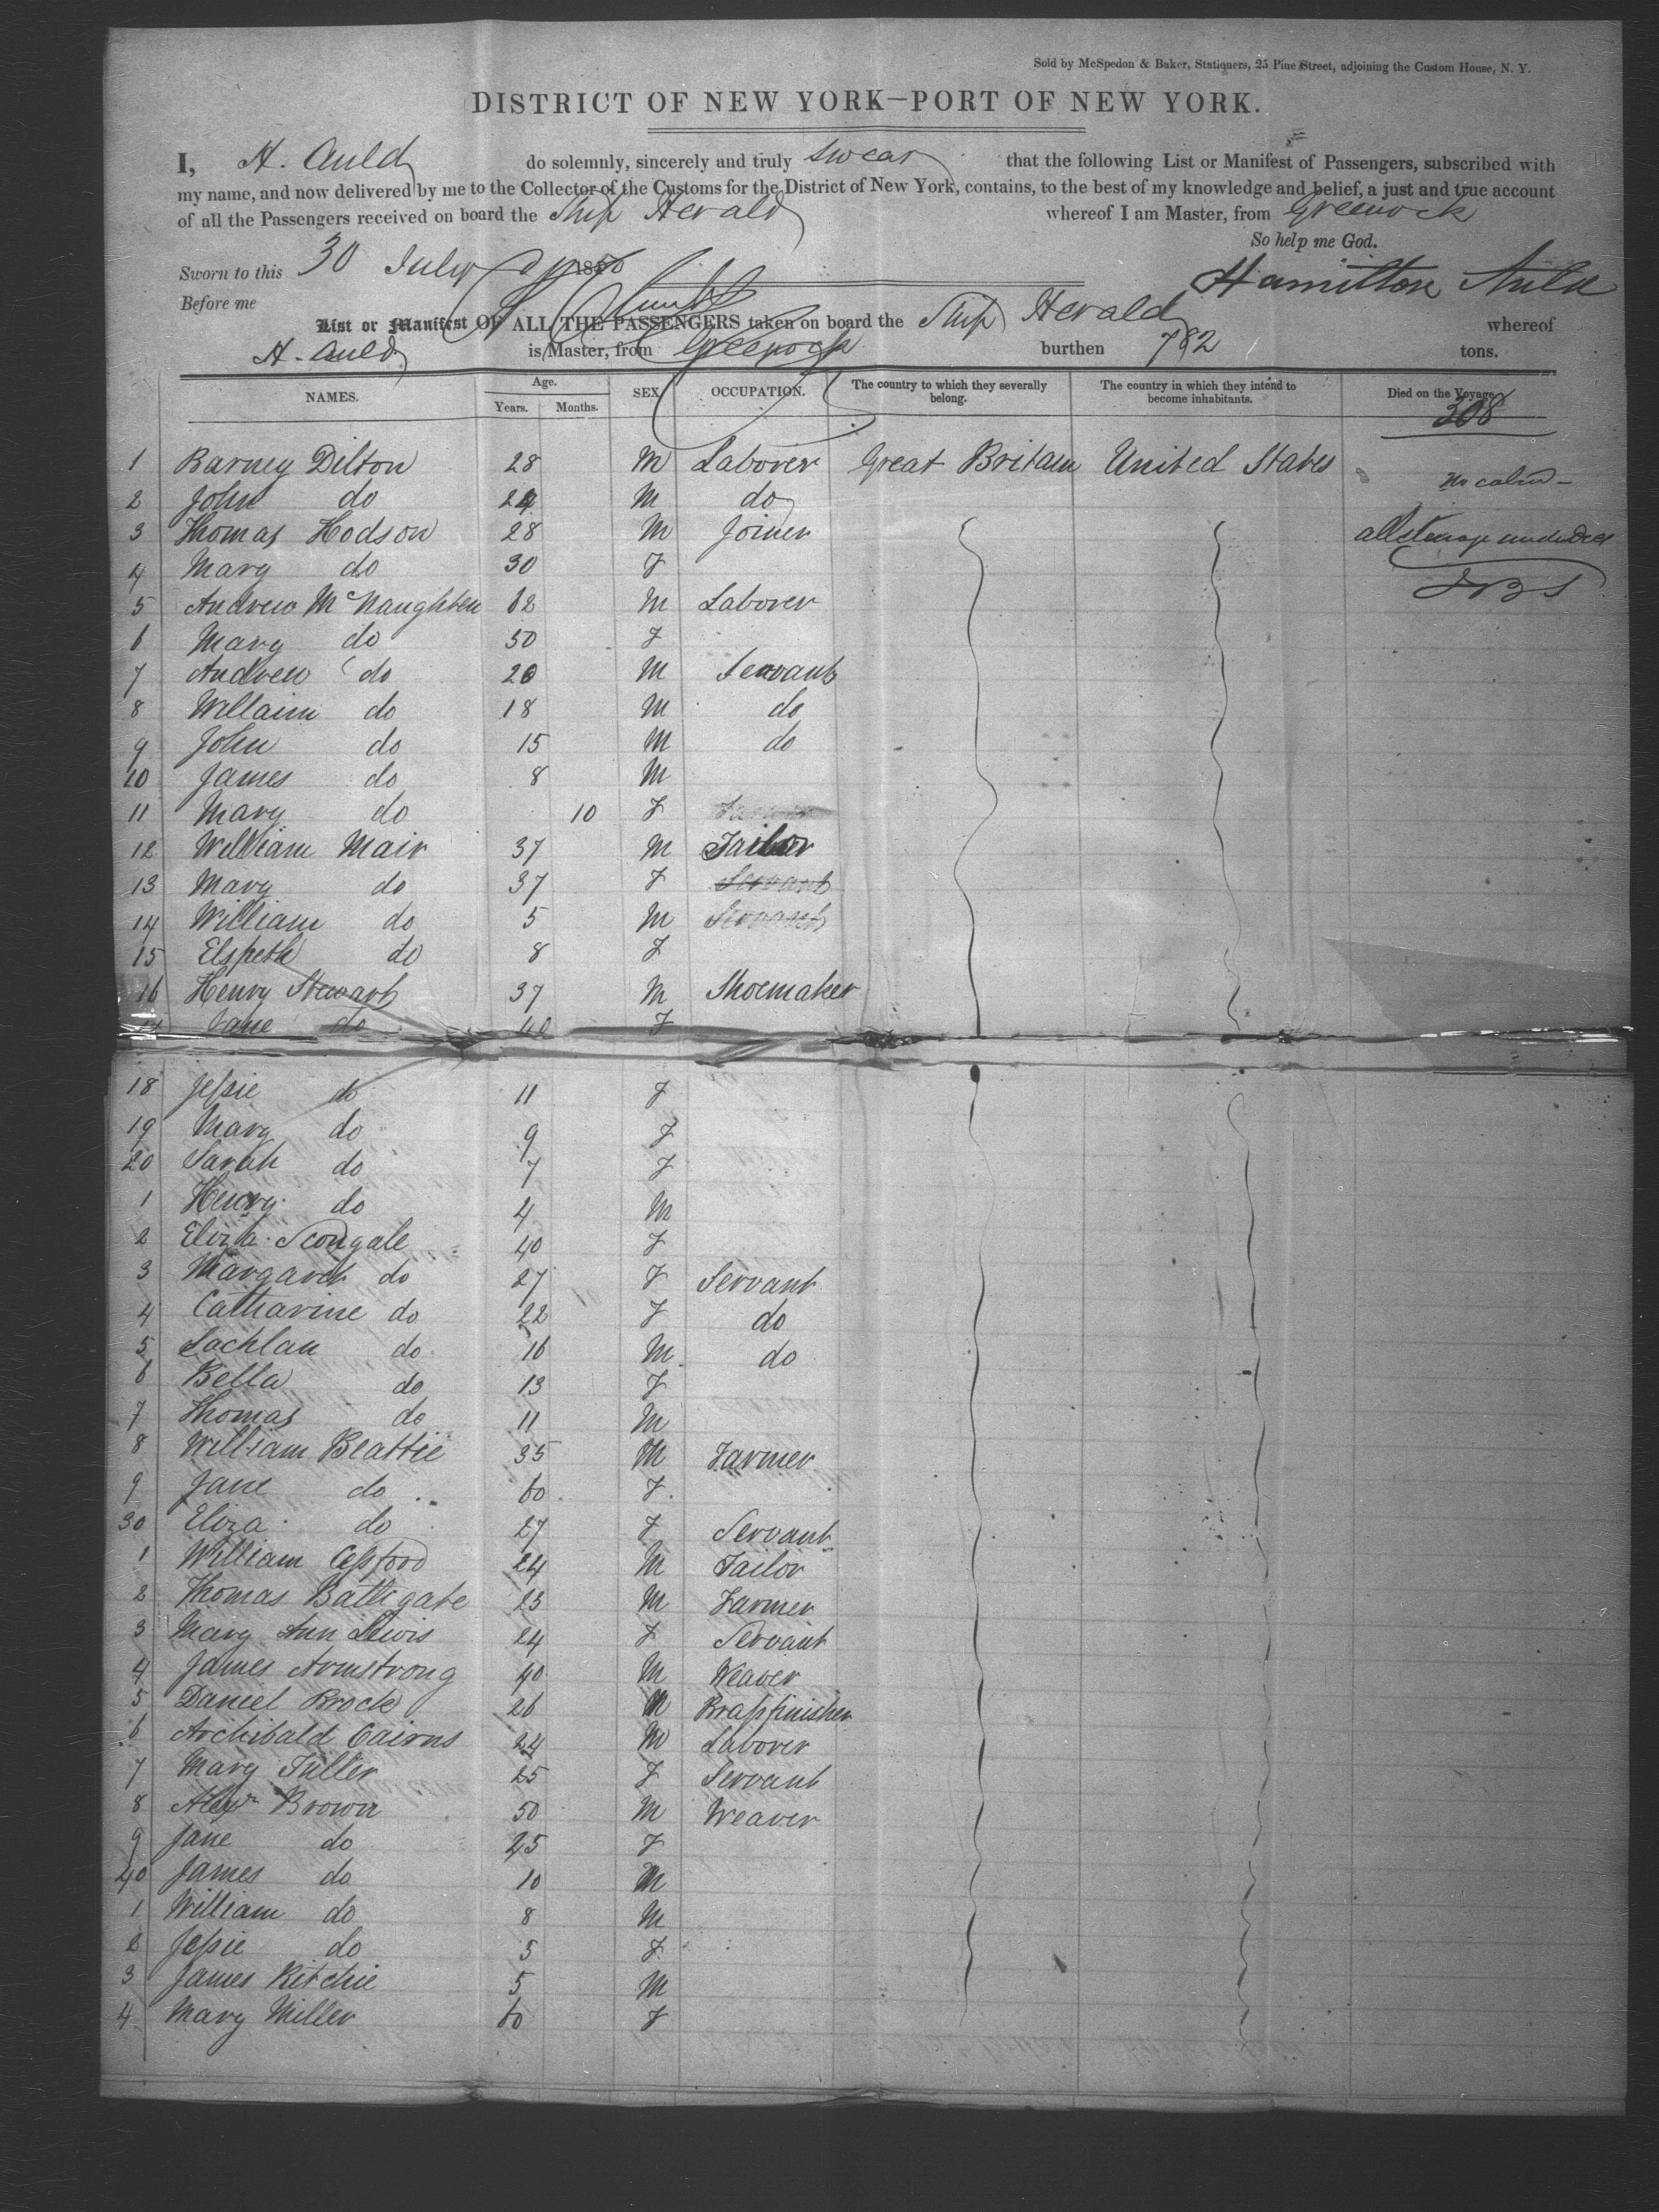 Sold by McSpedon & Baker, Stationers, 25 Pine Street, adjoining the Custom House, N. Y.
DISTRICT OF NEW YORK—PORT OF NEW YORK.
I, H. Auld do solemnly, sincerely and truly swear that the following List or Manifest of Passengers, subscribed with
my name, and now delivered by me to the Collector of the Customs for the District of New York, contains, to the best of my knowledge and belief, a just and true account
of all the Passengers received on board the Ship Herald whereof I am Master, from Greenock
So help me God.
Sworn to this 30 July 1850
Hamilton Auld
Before me
List or Manifest OF ALL THE PASSENGERS taken on board the Ship Herald whereof
H. Auld is Master, from Greenock burthen 782 tons.
NAMES. Age. Years. Months. SEX OCCUPATION. The country to which they severally belong. The country in which they intend to become inhabitants. Died on the Voyage
308
1 Barney Dilton 28 M Laborer Great Britain United States
no cabin
2 John do 24 M do
3 Thomas Hodson 28 M Joiner
all steerage
4 Mary do 30 F
5 Andrew McNaughten 62 M Laborer
6 Mary do 50 F
7 Andrew do 20 M Servant
8 Willaim do 18 M do
9 John do 15 M do
10 James do 8 M
11 Mary do 10 F
12 William Mair 37 M Tailor
13 Mary do 37 F Servant
14 William do 5 M Servant
15 Elspeth do 8 F
16 Henry Stewart 37 M Shoemaker
Jane do 40 F
18 Jessie do 11 F
19 Mary do 9 F
20 Sarah do 7 F
1 Henry do 4 M
2 Eliza Scougale 40 F
3 Margaret do 27 F Servant
4 Catharine do 22 F do
5 Lachlan do 16 M do
6 Bella do 13 F
7 Thomas do 11 M
8 William Beattie 35 M Farmer
9 Jane do 60 F
30 Eliza do 27 F Servant
1 William Cessford 24 M Tailor
2 Thomas Bathgate 23 M Farmer
3 Mary Ann Lewis 24 F Servant
4 James Armstrong 40 M Weaver
5 Daniel Brock 26 M Brassfinisher
6 Archibald Cairns 24 M Laborer
7 Mary Fuller 25 F Servant
8 Alexr Brown 50 M Weaver
9 Jane do 45 F
40 James do 10 M
1 William do 8 M
2 Jessie do 5 F
3 James Ritchie 5 M
4 Mary Miller 60 F